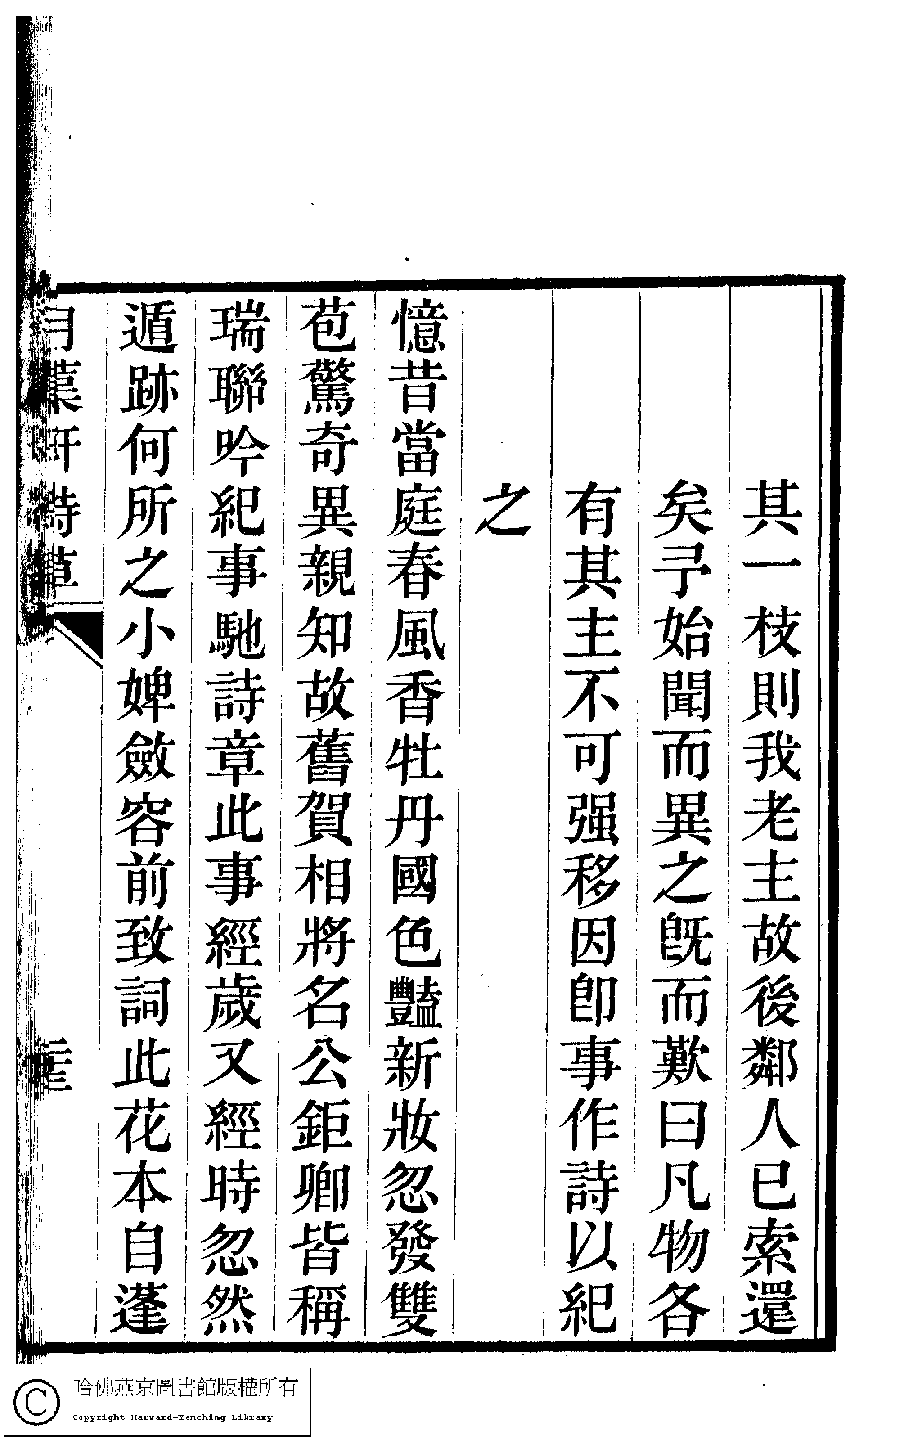 其一枝則我老主故後鄰人已索還
矣予始聞而異之旣而歎曰凡物各
有其主不可强移因卽事作詩以紀
之
憶昔當庭春風香牡丹國色豔新妝忽發雙
苞驚奇異親知故舊賀相將名公鉅卿皆稱
瑞聯吟紀事馳詩章此事經歲又經時忽然
遁跡何所之小婢斂容前致詞此花本自蓬
軒詩草
哈佛燕京圖書館版權所有
Copyright Harvard-Yenching Library